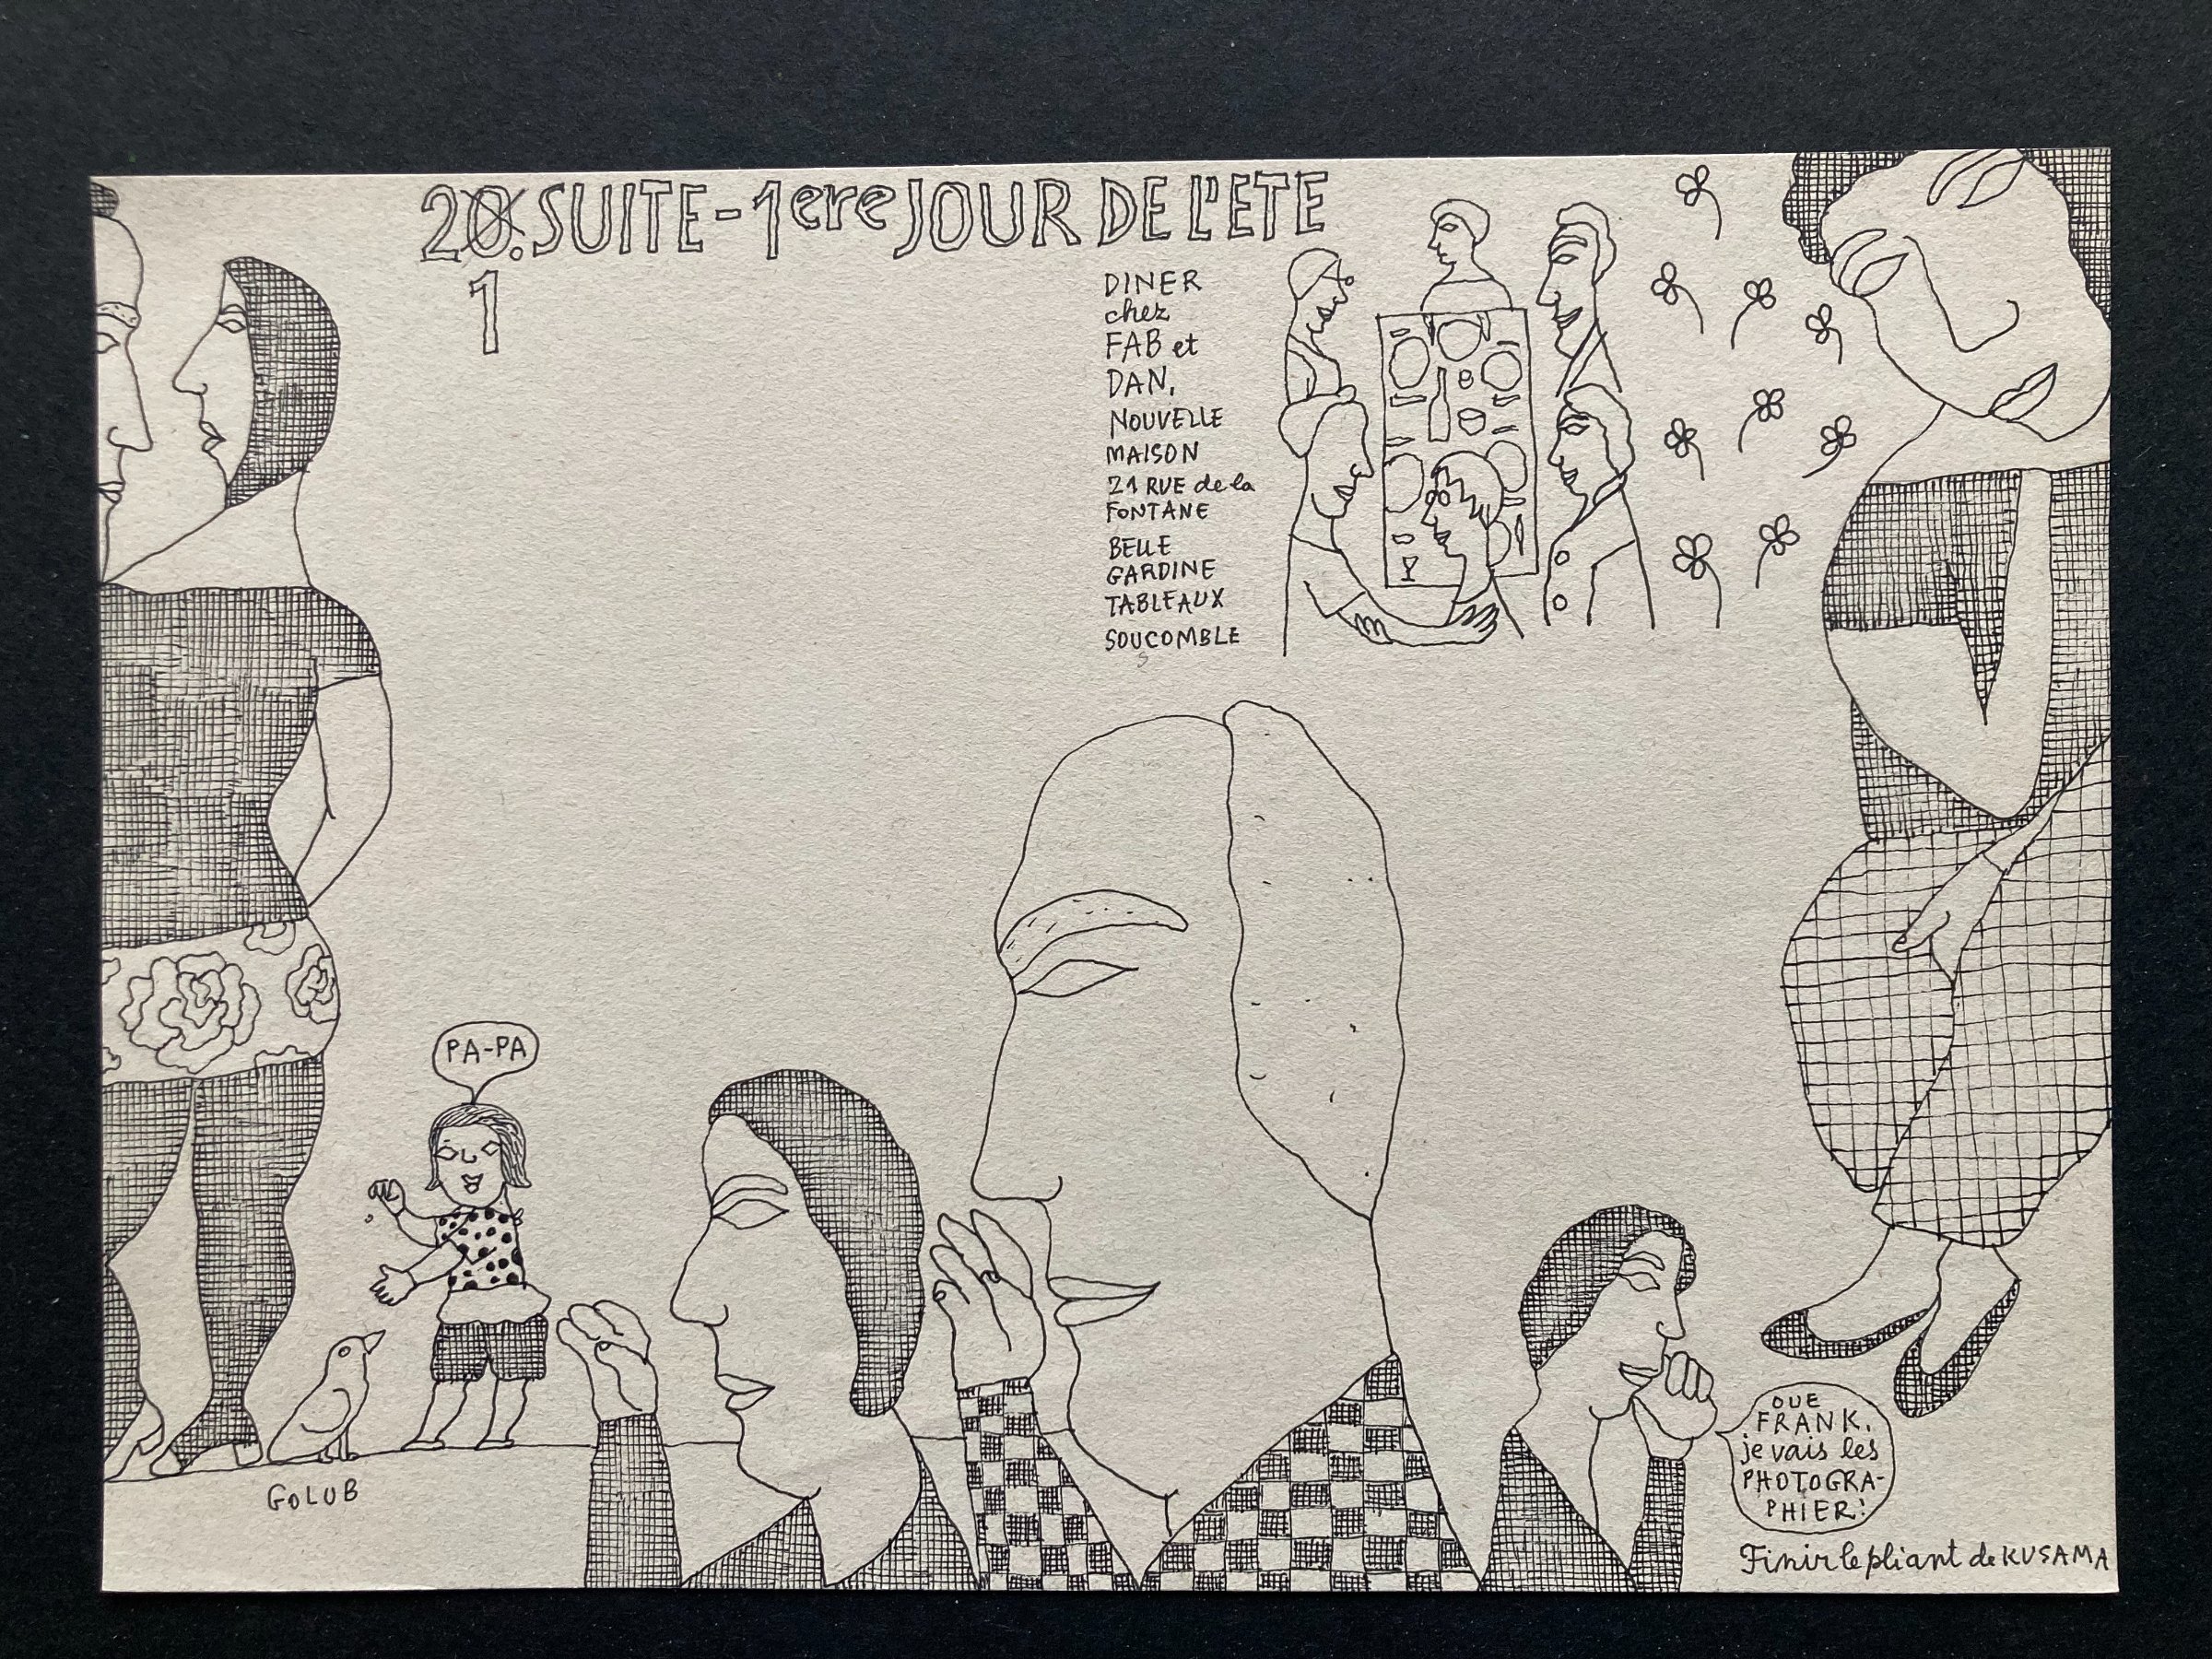 20. SUITE - 1ere JOUR DE L'ETE
1
DINER
chez
FAB et
DAN,
NOUVELLE
MAISON
21 RUE de la
FONTANE
BELLE
GARDINE
TABLEAUX
SOUCOMBLE
s
PA-PA
GOLUB
OUE
FRANK,
je vais les
PHOTOGRA-
PHIER!
Finir le pliant de KUSAMA